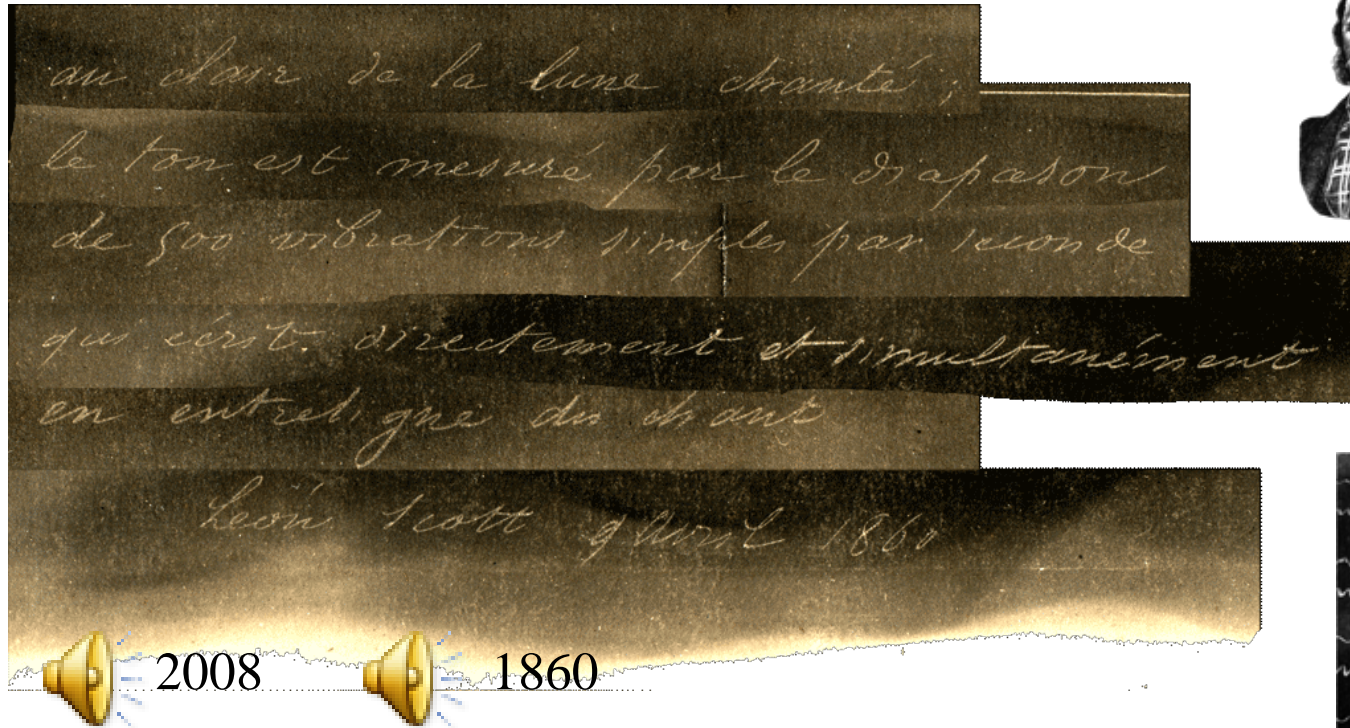 au clair de la lune chanté ;
le ton est mesuré par le diapason
de 500 vibrations simples par seconde
qui écrit directement et simultanément
en entreligne du chant
Léon Scott 9 Avril 1860
2008 1860